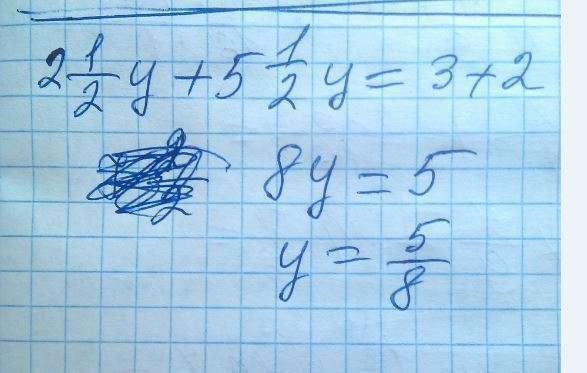 2 1/2 y + 5 1/2 y = 3 + 2
8y = 5
y = 5/8